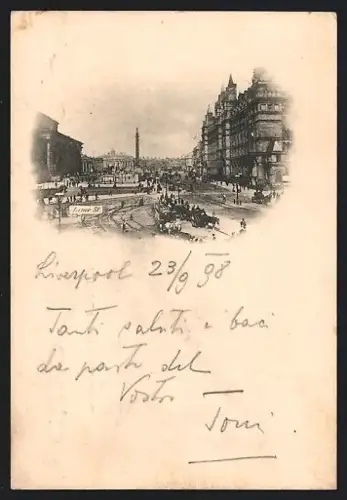 Lime St.
Liverpool 23/9 98
Tanti saluti e baci
da parte del
Vostro
Toni